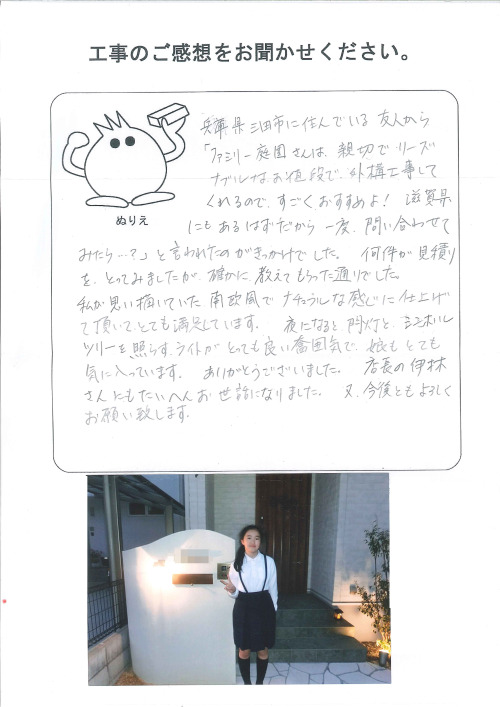 工事のご感想をお聞かせください。
兵庫県三田市に住んでいる友人から
「ファミリー庭園さんは、親切でリーズ
ナブルなお値段で、外構工事して
くれるので、すごくおすすめよ！ 滋賀県
にもあるはずだから一度、問い合わせて
みたら…？」と言われたのがきっかけでした。 何件か見積り
を、とってみましたが、確かに、教えてもらった通りでした。
私が思い描いていた南欧風でナチュラルな感じに仕上げ
て頂いてとても満足しています。 夜になると、門灯と、シンボル
ツリーを照らすライトがとっても良い雰囲気で、娘もとても
気に入っています。 ありがとうございました。 店長の伊林
さんにもたいへんお世話になりました。 又、今後ともよろしく
お願い致します。
ぬりえ